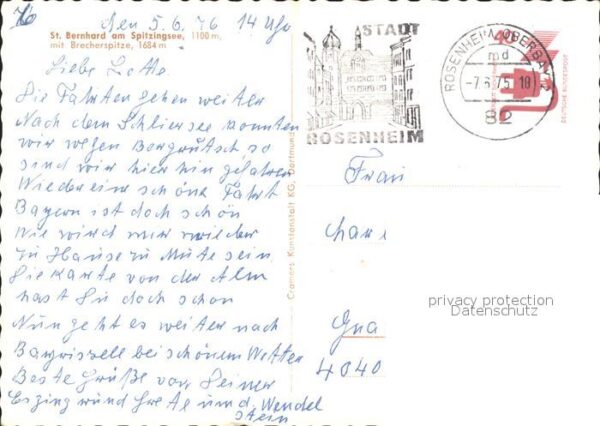 76
den 5.6.76 14 Uhr
St. Bernhard am Spitzingsee, 1100 m,
mit Brecherspitze, 1684 m
Liebe Lotte
Die Fahrten gehen weiter
Nach dem Schliersee konnten
wir wegen so
sind wir hier hin gefahren
Wieder eine schöne Fahrt
Bayern ist doch schön
Wie wird mir wieder
zu Hause zu Mute sein.
Die Karte von der Alm
hast Du doch schon
Nun geht es weiter nach
bei schönem Wetter
Beste Grüße von Deiner
und Grete und Wendel
stein
Cramers Kunstanstalt KG, Dortmund
STADT
ROSENHEIM
ROSENHEIM, OBERBAY
md
-7.6.75-18
82
40
DEUTSCHE BUNDESPOST
Frau
Char
Gna
4040
privacy protection
Datenschutz